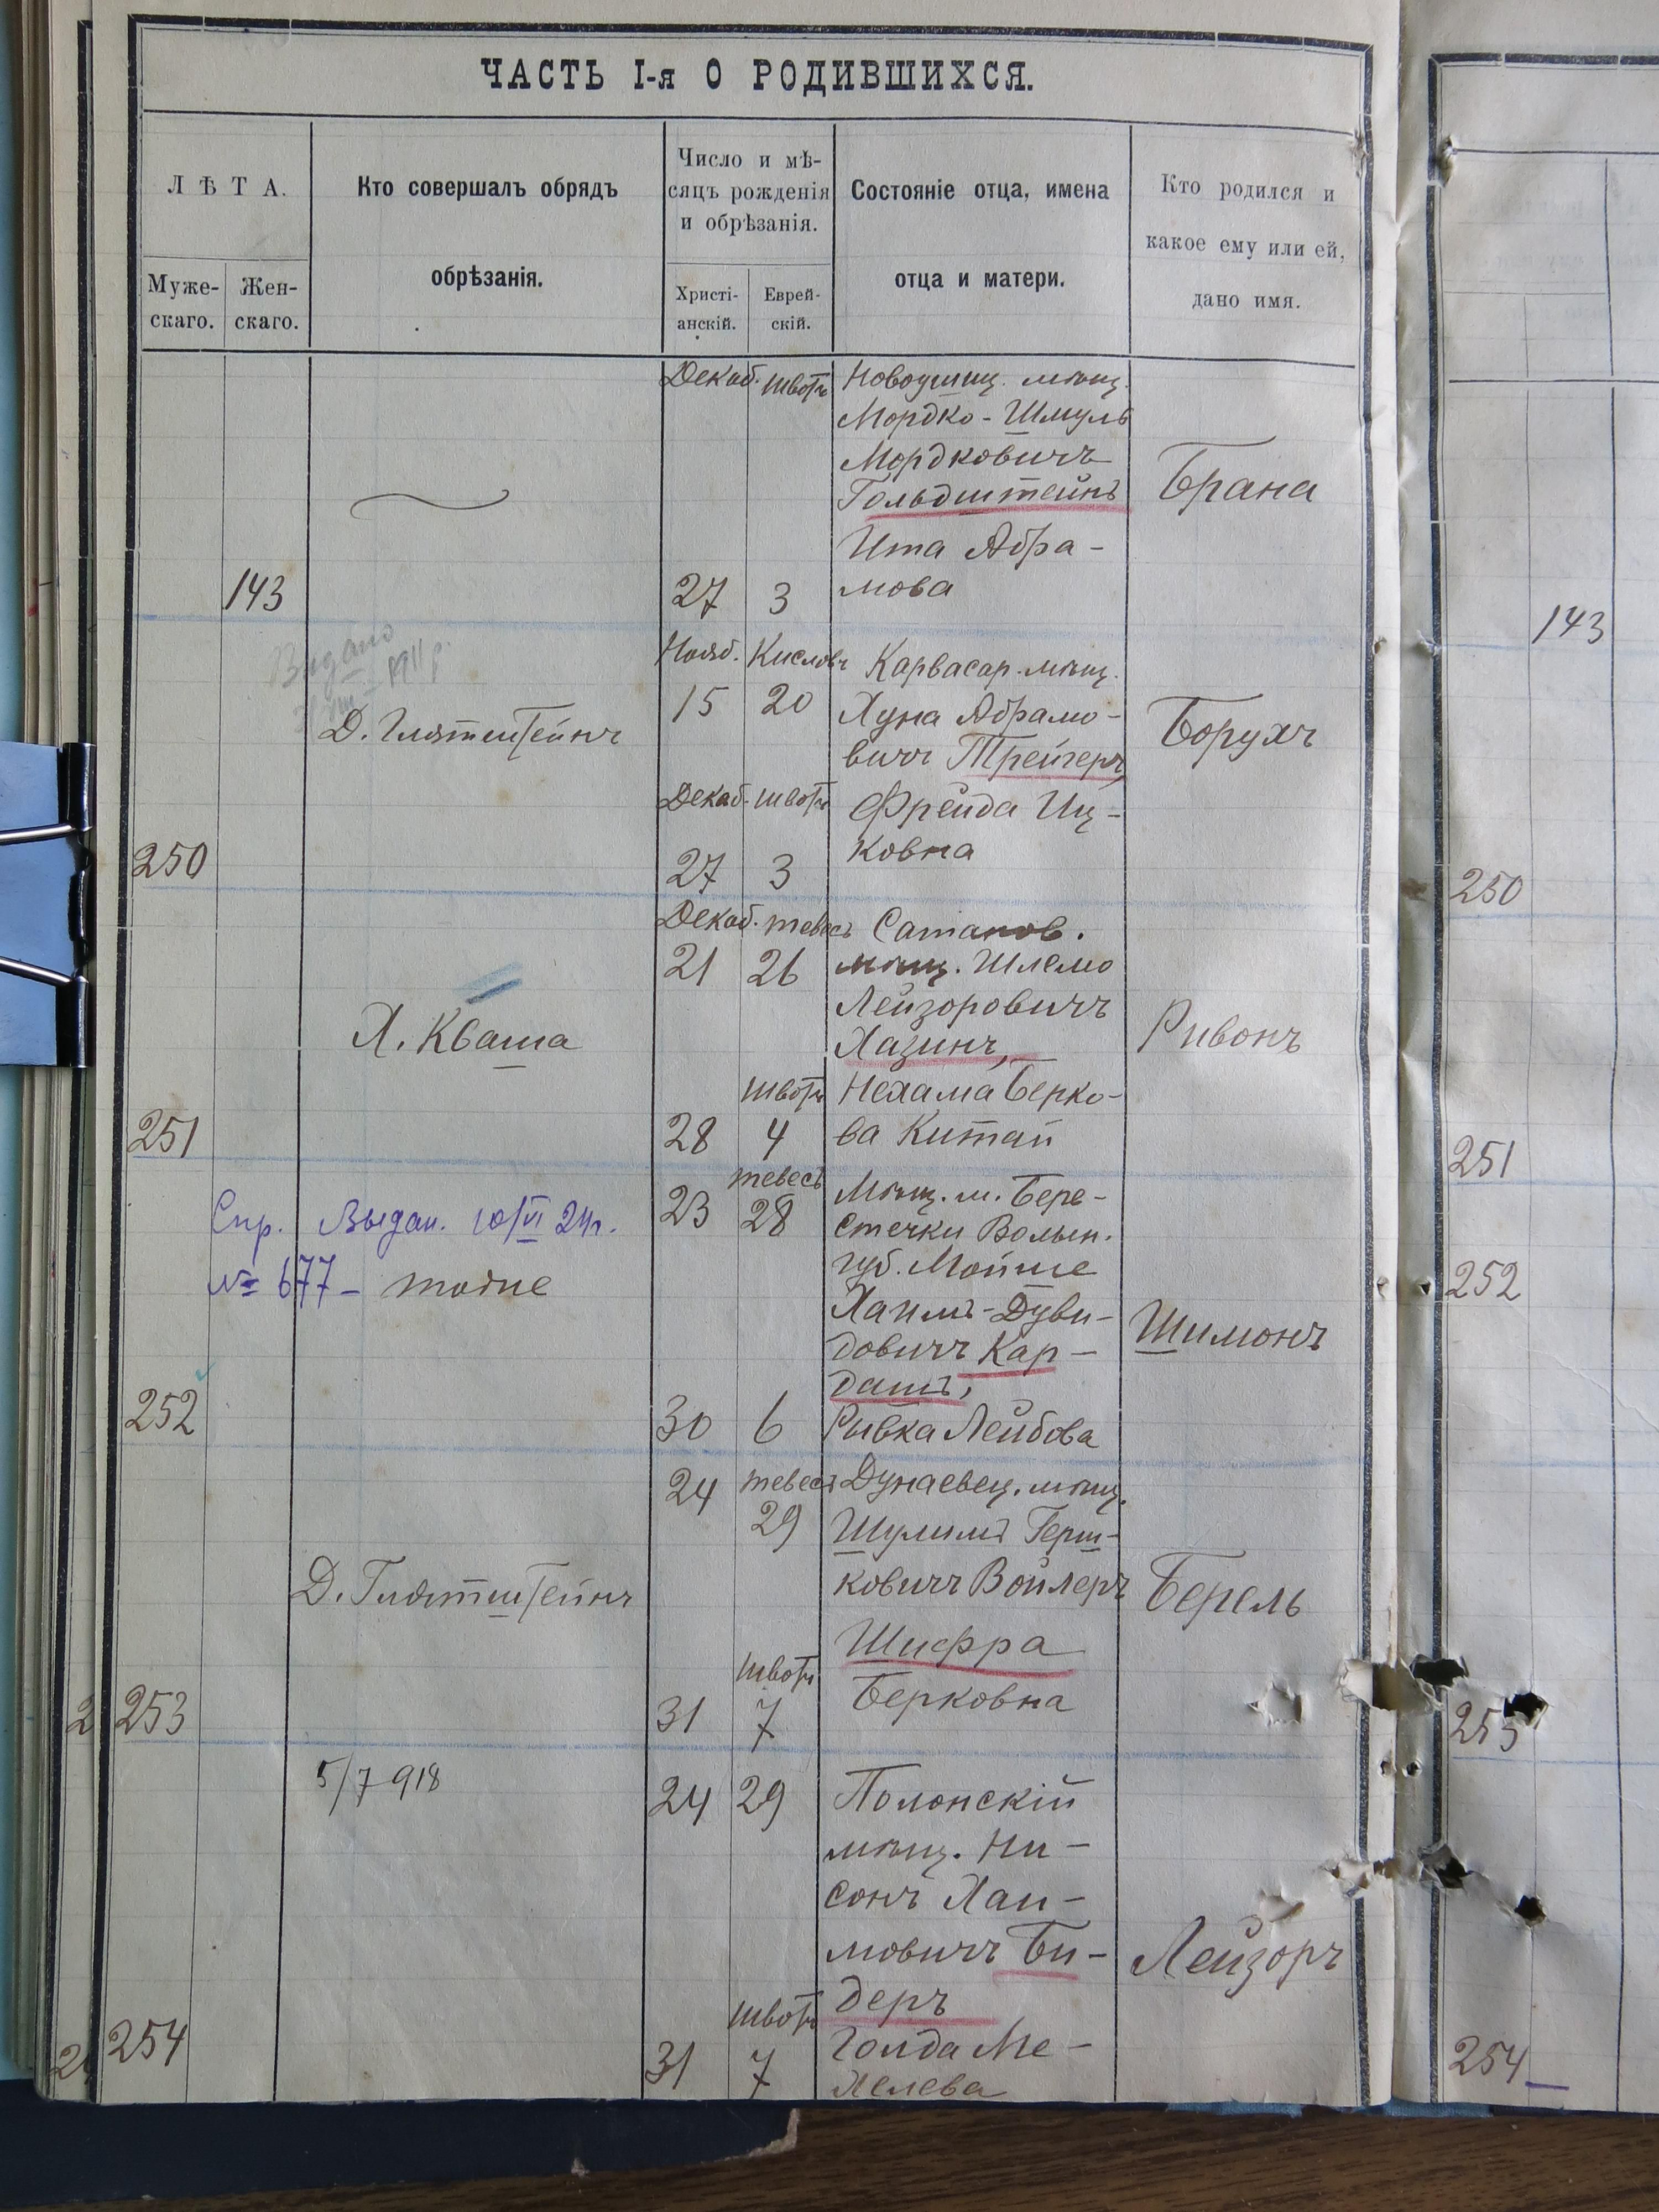 ЧАСТЬ I-я О РОДИВШИХСЯ.
ЛѢТА.
Муже-
скаго.
Жен-
скаго.
Кто совершалъ обрядъ
обрѣзанія.
Число и мѣ-
сяцъ рожденія
и обрѣзанія.
Христі-
анскій.
Еврей-
скій.
Состояніе отца, имена
отца и матери.
Кто родился и
какое ему или ей,
дано имя.
143
Декаб. Швотъ
27 3
Новоушиц. мѣщ.
Мордко-Шмуль
Мордковичъ
Гольдштейнъ
Ита Абра-
мова
Брана
143
Видано
250
Д. Глятштейнъ
Нояб. Кисловъ
15 20
Декаб. Швотъ
27 3
Карвасар. мѣщ.
Хуна Абрамо-
вичъ Трейгеръ,
Фрейда Иц-
ковна
Борухъ
250
251
Х. Кваша
Декаб. тевесъ
21 26
Швотъ
28 4
Сатанов.
мѣщ. Шлемо
Лейзоровичъ
Хазинъ,
Нехама Берко-
ва Китай
Ривонъ
251
Спр. Выдан. 10/VI 24г.
№ 677 — тоже
252
тевесъ
23 28
30 6
Мѣщ. м. Бере-
стечки Волын.
губ. Мойше
Хаимъ-Дуви-
довичъ Кар-
дашъ,
Рывка Лейбова
Шимонъ
252
253
Д. Глятштейнъ
24 тевесъ
29
Швотъ
31 7
Дунаевец. мѣщ.
Шулимъ Герш-
ковичъ Войлеръ
Шифра
Берковна
Берель
253
5/7 918
254
24 29
Швотъ
31 7
Полонскій
мѣщ. Ни-
сонъ Хаи-
мовичъ Би-
деръ
Голда Ме-
хелева
Лейзоръ
254